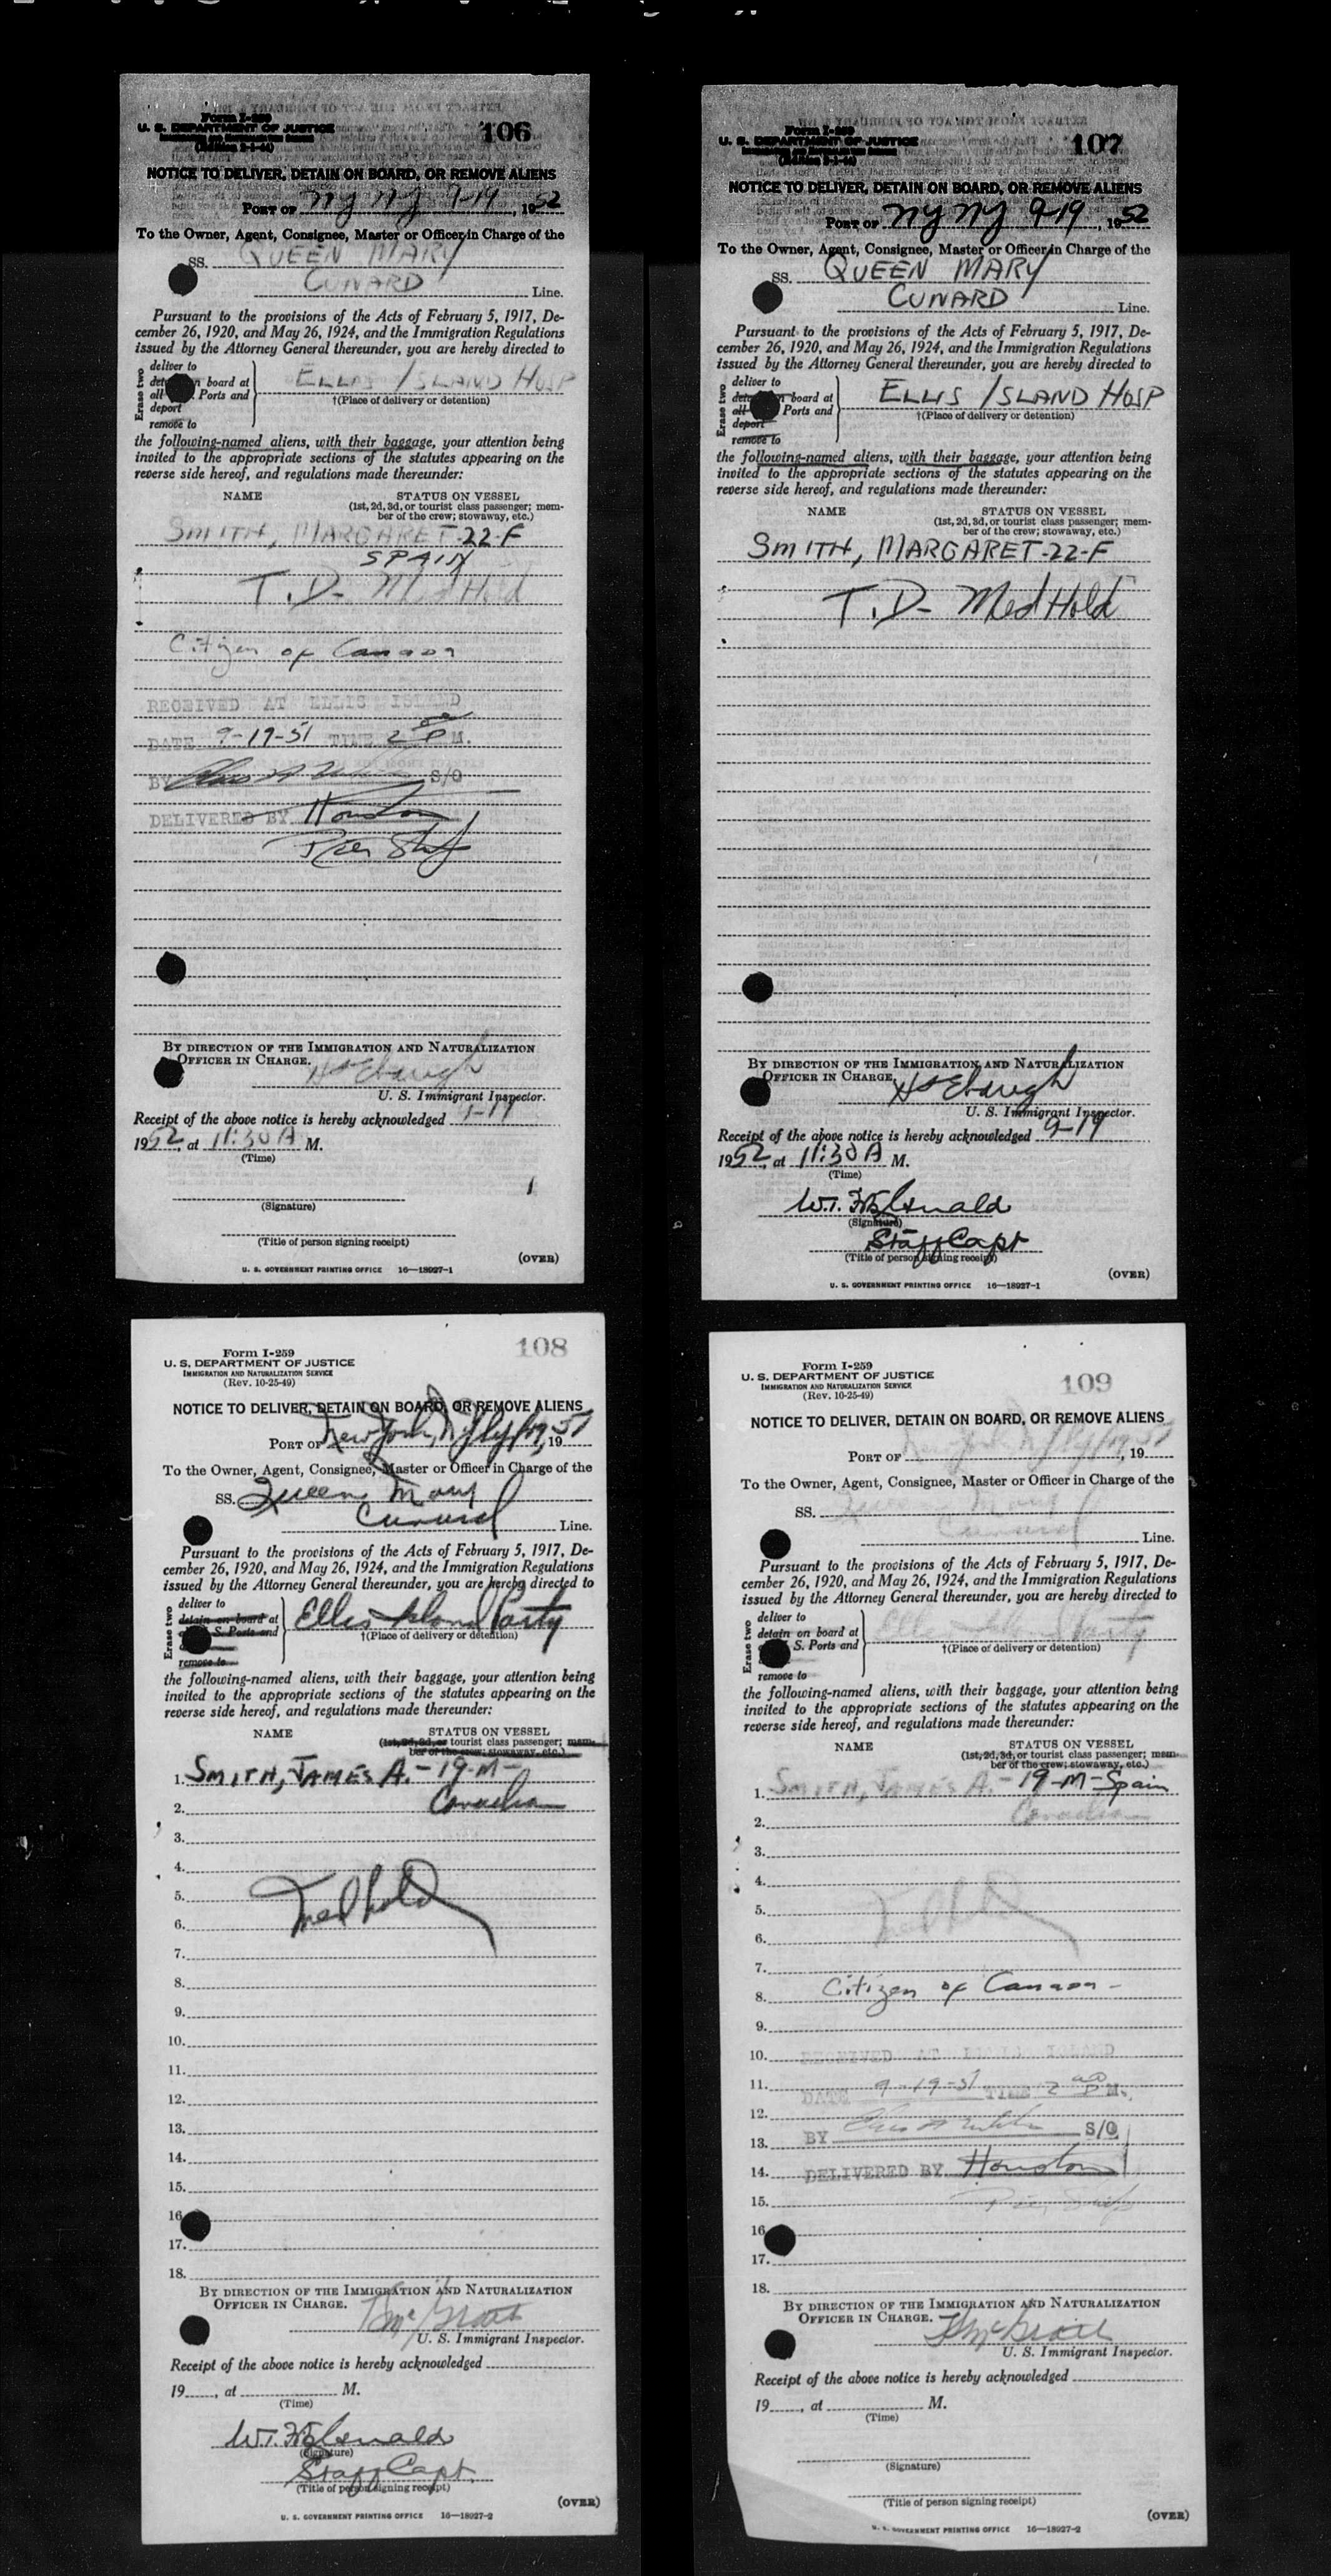 Form I-259
U. S. DEPARTMENT OF JUSTICE
IMMIGRATION AND NATURALIZATION SERVICE
106
NOTICE TO DELIVER, DETAIN ON BOARD, OR REMOVE ALIENS
PORT OF NY NY 9-19, 1952
To the Owner, Agent, Consignee, Master or Officer in Charge of the
SS. QUEEN MARY
CUNARD Line.
Pursuant to the provisions of the Acts of February 5, 1917, De-
cember 26, 1920, and May 26, 1924, and the Immigration Regulations
issued by the Attorney General thereunder, you are hereby directed to
Erase two
deliver to
board at
all Ports and
deport
remove to
ELLIS ISLAND HOSP
†(Place of delivery or detention)
the following-named aliens, with their baggage, your attention being
invited to the appropriate sections of the statutes appearing on the
reverse side hereof, and regulations made thereunder:
NAME STATUS ON VESSEL
(1st, 2d, 3d, or tourist class passenger; mem-
ber of the crew; stowaway, etc.)
SMITH, MARGARET-22-F
SPAIN
T.D- Med Hold
Citizen of Canada
RECEIVED AT ELLIS ISLAND
DATE 9-19-51 TIME 2 00 P M.
BY S/O
DELIVERED BY Houston
BY DIRECTION OF THE IMMIGRATION AND NATURALIZATION
OFFICER IN CHARGE.
U. S. Immigrant Inspector.
Receipt of the above notice is hereby acknowledged 9-19
1952, at 11:30 A M.
(Time)
(Signature)
(Title of person signing receipt)
(OVER)
U. S. GOVERNMENT PRINTING OFFICE 16—18927-1
Form I-259
U. S. DEPARTMENT OF JUSTICE
107
NOTICE TO DELIVER, DETAIN ON BOARD, OR REMOVE ALIENS
PORT OF NY NY 9-19, 1952
To the Owner, Agent, Consignee, Master or Officer in Charge of the
SS. QUEEN MARY
CUNARD Line.
Pursuant to the provisions of the Acts of February 5, 1917, De-
cember 26, 1920, and May 26, 1924, and the Immigration Regulations
issued by the Attorney General thereunder, you are hereby directed to
Erase two
deliver to
board at
all Ports and
deport
remove to
ELLIS ISLAND HOSP
†(Place of delivery or detention)
the following-named aliens, with their baggage, your attention being
invited to the appropriate sections of the statutes appearing on the
reverse side hereof, and regulations made thereunder:
NAME STATUS ON VESSEL
(1st, 2d, 3d, or tourist class passenger; mem-
ber of the crew; stowaway, etc.)
SMITH, MARGARET-22-F
T.D- Med Hold
BY DIRECTION OF THE IMMIGRATION AND NATURALIZATION
OFFICER IN CHARGE.
U. S. Immigrant Inspector.
Receipt of the above notice is hereby acknowledged 9-19
1952, at 11:30 A M.
(Time)
(Signature)
Staff Capt
(Title of person signing receipt)
(OVER)
U. S. GOVERNMENT PRINTING OFFICE 16—18927-1
Form I-259
U. S. DEPARTMENT OF JUSTICE
IMMIGRATION AND NATURALIZATION SERVICE
(Rev. 10-25-49)
108
NOTICE TO DELIVER, DETAIN ON BOARD, OR REMOVE ALIENS
PORT OF New York, N.Y., 19
To the Owner, Agent, Consignee, Master or Officer in Charge of the
SS. Queen Mary
Cunard Line.
Pursuant to the provisions of the Acts of February 5, 1917, De-
cember 26, 1920, and May 26, 1924, and the Immigration Regulations
issued by the Attorney General thereunder, you are hereby directed to
Erase two
deliver to
detain on board at
S. Ports and
remove to
Ellis Island Party
†(Place of delivery or detention)
the following-named aliens, with their baggage, your attention being
invited to the appropriate sections of the statutes appearing on the
reverse side hereof, and regulations made thereunder:
NAME STATUS ON VESSEL
(1st, 2d, 3d, or tourist class passenger; mem-
ber of the crew; stowaway, etc.)
1. SMITH, JAMES A. - 19-M-
2. Canadian
3.
4.
5. Med hold
6.
7.
8.
9.
10.
11.
12.
13.
14.
15.
16
17.
18.
BY DIRECTION OF THE IMMIGRATION AND NATURALIZATION
OFFICER IN CHARGE.
U. S. Immigrant Inspector.
Receipt of the above notice is hereby acknowledged
19, at M.
(Time)
(Signature)
Staff Capt.
(Title of person signing receipt)
(OVER)
U. S. GOVERNMENT PRINTING OFFICE 16—18927-2
Form I-259
U. S. DEPARTMENT OF JUSTICE
IMMIGRATION AND NATURALIZATION SERVICE
(Rev. 10-25-49)
109
NOTICE TO DELIVER, DETAIN ON BOARD, OR REMOVE ALIENS
PORT OF New York, N.Y., 19
To the Owner, Agent, Consignee, Master or Officer in Charge of the
SS. Queen Mary
Cunard Line.
Pursuant to the provisions of the Acts of February 5, 1917, De-
cember 26, 1920, and May 26, 1924, and the Immigration Regulations
issued by the Attorney General thereunder, you are hereby directed to
Erase two
deliver to
detain on board at
S. Ports and
remove to
Ellis Island Party
†(Place of delivery or detention)
the following-named aliens, with their baggage, your attention being
invited to the appropriate sections of the statutes appearing on the
reverse side hereof, and regulations made thereunder:
NAME STATUS ON VESSEL
(1st, 2d, 3d, or tourist class passenger; mem-
ber of the crew; stowaway, etc.)
1. SMITH, JAMES A. - 19-M-Spain
2. Canadian
3.
4.
5. Med hold
6.
7.
8. Citizen of Canada -
9.
10. RECEIVED AT ELLIS ISLAND
11. DATE 9-19-51 TIME 2 00 P M.
12.
13. BY S/O
14. DELIVERED BY Houston
15.
16
17.
18.
BY DIRECTION OF THE IMMIGRATION AND NATURALIZATION
OFFICER IN CHARGE.
U. S. Immigrant Inspector.
Receipt of the above notice is hereby acknowledged
19, at M.
(Time)
(Signature)
(Title of person signing receipt)
(OVER)
U. S. GOVERNMENT PRINTING OFFICE 16—18927-2